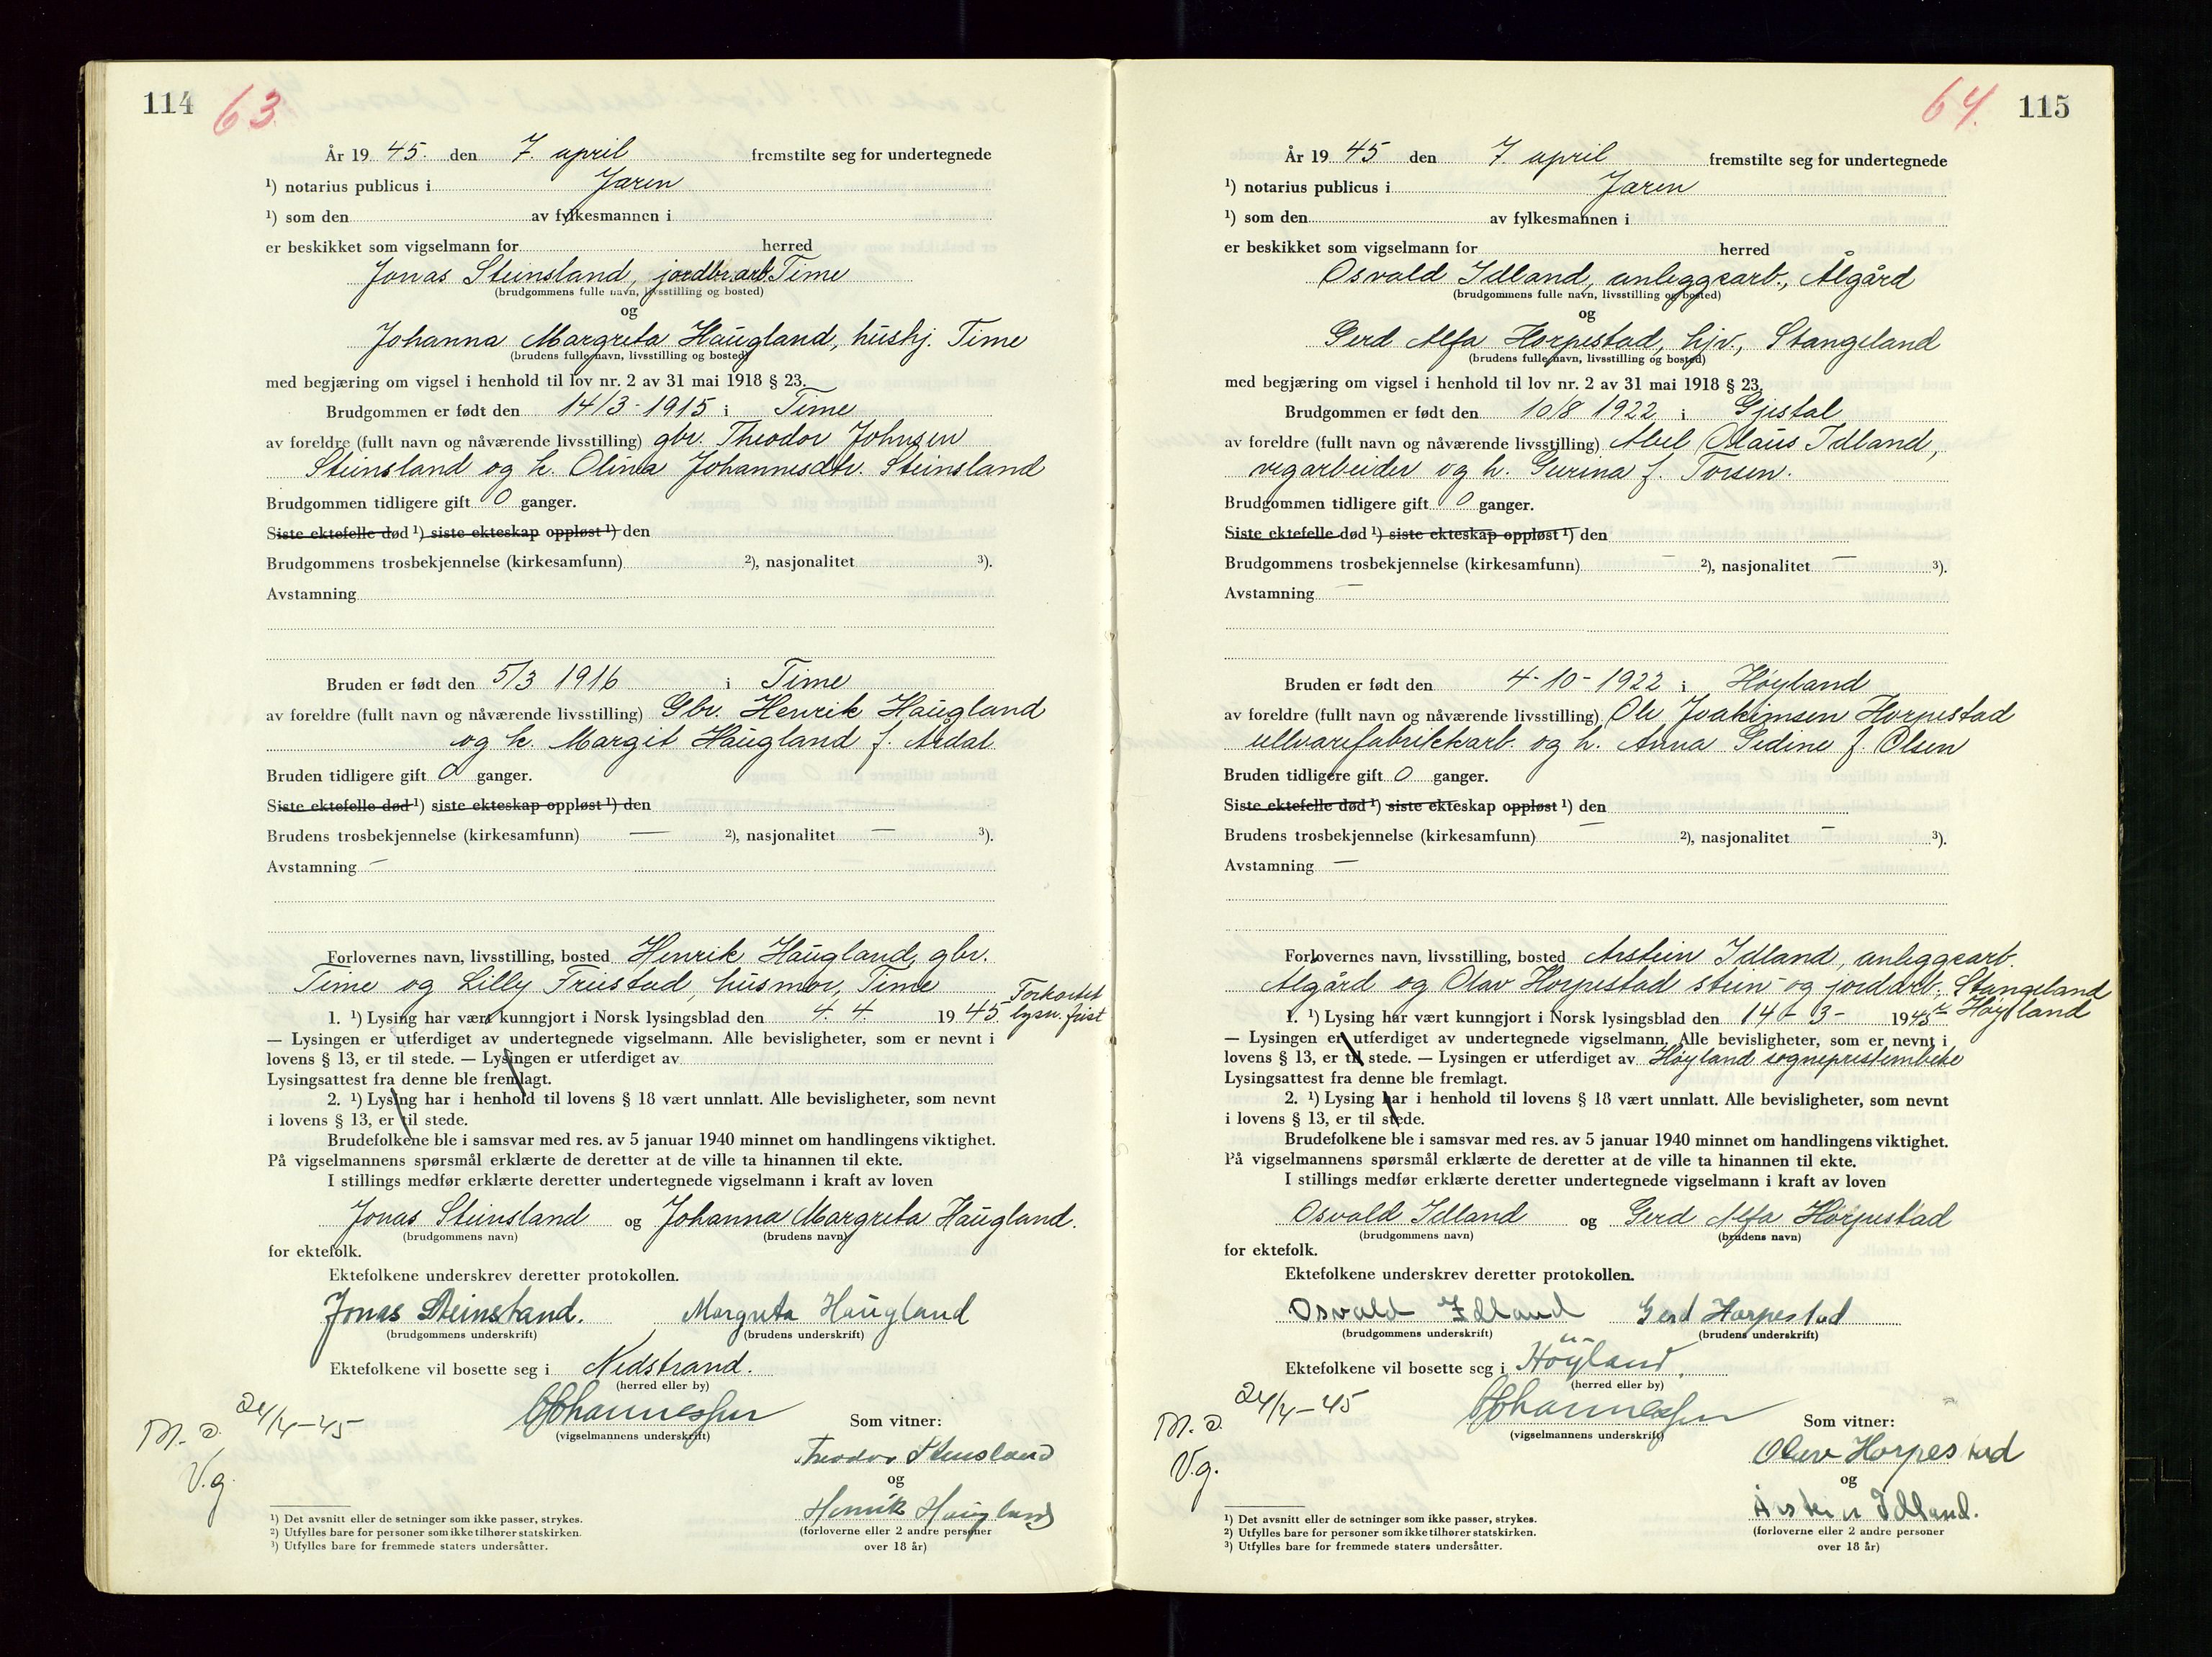 114 63.
År 19 45. den 7. april fremstilte seg for undertegnede
¹) notarius publicus i Jæren
¹) som den av fylkesmannen i
er beskikket som vigselmann for herred
Jonas Steinsland, jordbr.arb. Time
(brudgommens fulle navn, livsstilling og bosted)
og
Johanna Margreta Haugland, hushj. Time
(brudens fulle navn, livsstilling og bosted)
med begjæring om vigsel i henhold til lov nr. 2 av 31 mai 1918 § 23.
Brudgommen er født den 14/3 - 1915 i Time
av foreldre (fullt navn og nåværende livsstilling) gbr. Theodor Johnsen
Steinsland og h. Olina Johannesdtr. Steinsland
Brudgommen tidligere gift 0 ganger.
Siste ektefelle død ¹) siste ekteskap oppløst ¹) den
Brudgommens trosbekjennelse (kirkesamfunn) ²), nasjonalitet ³).
Avstamning
Bruden er født den 5/3 1916 i Time
av foreldre (fullt navn og nåværende livsstilling) Gbr. Henrik Haugland
og h. Margit Haugland f. Årdal
Bruden tidligere gift 0 ganger.
Siste ektefelle død ¹) siste ekteskap oppløst ¹) den
Brudens trosbekjennelse (kirkesamfunn) — ²), nasjonalitet — ³).
Avstamning —
Forlovernes navn, livsstilling, bosted Henrik Haugland, gbr.
Time og Lilly Friestad, husmor, Time
1. ¹) Lysing har vært kunngjort i Norsk lysingsblad den 4. 4. 19 45. Forkortet lysn. frist
— Lysingen er utferdiget av undertegnede vigselmann. Alle bevisligheter, som er nevnt i
lovens § 13, er til stede. — Lysingen er utferdiget av
Lysingsattest fra denne ble fremlagt.
2. ¹) Lysing har i henhold til lovens § 18 vært unnlatt. Alle bevisligheter, som nevnt
i lovens § 13, er til stede.
Brudefolkene ble i samsvar med res. av 5 januar 1940 minnet om handlingens viktighet.
På vigselmannens spørsmål erklærte de deretter at de ville ta hinannen til ekte.
I stillings medfør erklærte deretter undertegnede vigselmann i kraft av loven
Jonas Steinsland og Johanna Margreta Haugland.
(brudgommens navn) (brudens navn)
for ektefolk.
Ektefolkene underskrev deretter protokollen.
Jonas Steinsland. Margreta Haugland
(brudgommens underskrift) (brudens underskrift)
Ektefolkene vil bosette seg i Nedstrand.
(herred eller by)
M. d. 24/4-45
V.g.
(vigselmannens underskrift)
Som vitner:
Theodor Steinsland
og
Henrik Haugland
(forloverne eller 2 andre personer
over 18 år)
¹) Det avsnitt eller de setninger som ikke passer, strykes.
²) Utfylles bare for personer som ikke tilhører statskirken.
³) Utfylles bare for fremmede staters undersåtter.
64. 115
År 19 45 den 7 april fremstilte seg for undertegnede
¹) notarius publicus i Jæren
¹) som den av fylkesmannen i
er beskikket som vigselmann for herred
Osvald Idland, anleggsarb., Ålgård
(brudgommens fulle navn, livsstilling og bosted)
og
Gerd Alfa Horpestad, hjv., Stangeland
(brudens fulle navn, livsstilling og bosted)
med begjæring om vigsel i henhold til lov nr. 2 av 31 mai 1918 § 23.
Brudgommen er født den 10/8 1922 i Gjestal
av foreldre (fullt navn og nåværende livsstilling) Abel Olaus Idland,
vegarbeider og h. Gurina f. Torsen.
Brudgommen tidligere gift 0 ganger.
Siste ektefelle død ¹) siste ekteskap oppløst ¹) den
Brudgommens trosbekjennelse (kirkesamfunn) — ²), nasjonalitet — ³).
Avstamning —
Bruden er født den 4-10-1922 i Høyland
av foreldre (fullt navn og nåværende livsstilling) Ole Joakimsen Horpestad
ullvarefabrikkarb. og h. Anna Gidine f. Olsen
Bruden tidligere gift 0 ganger.
Siste ektefelle død ¹) siste ekteskap oppløst ¹) den
Brudens trosbekjennelse (kirkesamfunn) — ²), nasjonalitet — ³).
Avstamning —
Forlovernes navn, livsstilling, bosted Arstein Idland, anleggsarb.
Ålgård og Olav Horpestad stein- og jordarb., Stangeland
Høyland
1. ¹) Lysing har vært kunngjort i Norsk lysingsblad den 14 - 3 - 1945
— Lysingen er utferdiget av undertegnede vigselmann. Alle bevisligheter, som er nevnt i
lovens § 13, er til stede. — Lysingen er utferdiget av Høyland sogneprestembete
Lysingsattest fra denne ble fremlagt.
2. ¹) Lysing har i henhold til lovens § 18 vært unnlatt. Alle bevisligheter, som nevnt
i lovens § 13, er til stede.
Brudefolkene ble i samsvar med res. av 5 januar 1940 minnet om handlingens viktighet.
På vigselmannens spørsmål erklærte de deretter at de ville ta hinannen til ekte.
I stillings medfør erklærte deretter undertegnede vigselmann i kraft av loven
Osvald Idland og Gerd Alfa Horpestad
(brudgommens navn) (brudens navn)
for ektefolk.
Ektefolkene underskrev deretter protokollen.
Osvald Idland Gerd Horpestad
(brudgommens underskrift) (brudens underskrift)
Ektefolkene vil bosette seg i Høyland.
(herred eller by)
M. d. 24/4-45
V.g.
(vigselmannens underskrift)
Som vitner:
Olav Horpestad
og
Arstein Idland.
(forloverne eller 2 andre personer
over 18 år)
¹) Det avsnitt eller de setninger som ikke passer, strykes.
²) Utfylles bare for personer som ikke tilhører statskirken.
³) Utfylles bare for fremmede staters undersåtter.